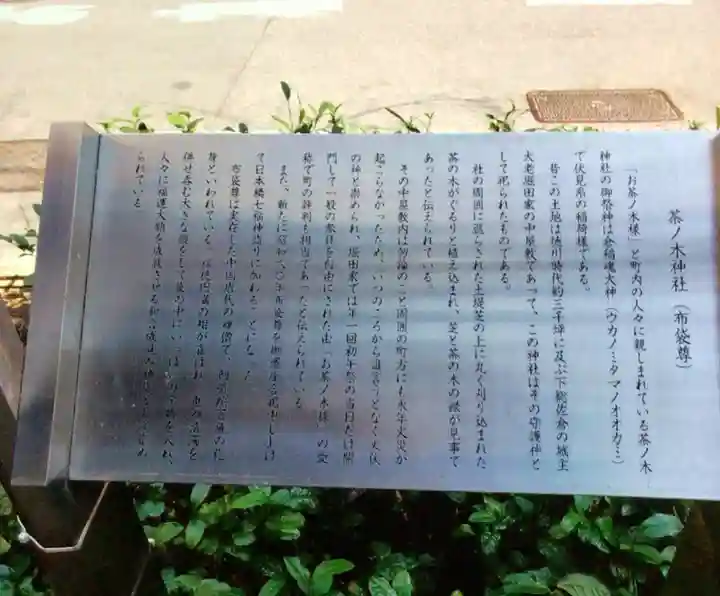 茶ノ木神社（布袋尊）
「お茶ノ木様」と町内の人々に親しまれている茶ノ木
神社の御祭神は倉稲魂大神（ウカノミタマノオオカミ）
で伏見系の稲荷様である。
昔この土地は徳川時代約三千坪に及ぶ下総佐倉の城主
大老堀田家の中屋敷であって、この神社はその守護神と
して祀られたものである。
社の周囲に巡らされた土堤芝の上に丸く刈り込まれた
茶の木がぐるりと植え込まれ、芝と茶の木の緑が見事で
あったと伝えられている。
その中屋敷内は勿論のこと周囲の町方にも永年火災が
起こらなかったため、いつのころから誰言うとなく火伏
の神と崇められ、堀田家では年一回初午祭の当日だけ開
門して一般の参詣を自由にされた由「お茶ノ木様」の愛
称で町の評判も相当であったと伝えられている。
また、新たに昭和六〇年布袋尊を御遷座申し上げ
て日本橋七福神詣りに加わることになった。
布袋尊は実在した中国唐代の禅僧で、阿弥陀菩薩の化
身といわれている。福徳円満の相が喜ばれ、
併せ呑む大きな腹をして袋の中にいっぱいの宝物を入れ、
人々に福運大願を成就させる和合成
られている。